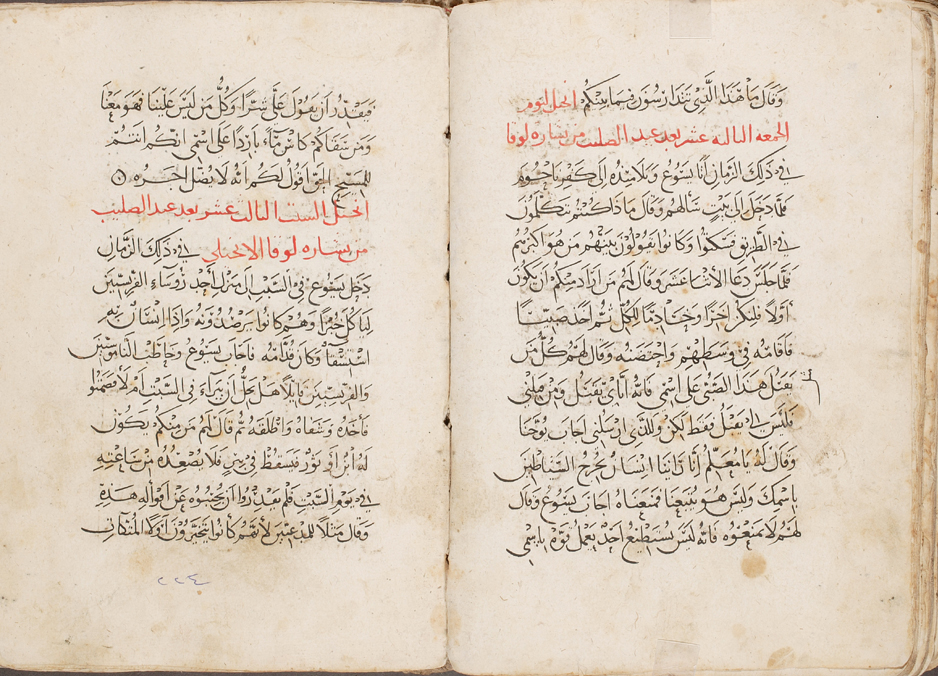 وقال ما هذا الذي تتدارسون فيما بينكم انجيل اليوم
الجمعه الثالثه عشر بعد عيد الصليب من بشاره لوقا
في ذلك الزمان اتا يسوع وتلاميذه الى كفرناحوم
فلما دخل الى البيت سالهم وقال ماذا كنتم تتكلمون
في الطريق فسكتوا وكانوا يقولون بينهم من هو اكبرهم
فلما جلس دعا الاثنا عشر وقال لهم من اراد منكم ان يكون
اولا فليكن اخرا وخادما للكل ثم اخذ صبيا
فاقامه في وسطهم واحتضنه وقال لهم كل من
يقبل هذا الصبي على اسمي فانه اياي يقبل ومن يقبلني
فليس لي يقبل فقط لكن وللذي ارسلني اجاب يوحنا
وقال له يا معلم انا راينا انسان يخرج الشياطين
باسمك وليس هو يتبعنا فمنعناه اجاب يسوع وقال
لهم لا تمنعوه فانه ليس يستطيع احد يعمل قوه باسمي
فيقدر ان يقول علي شرا وكل من ليس علينا فهو معنا
ومن سقاكم كاس ماء باردا على اسمي انكم انتم
للمسيح الحق اقول لكم انه لا يضل اجره
انجيل السبت الثالث عشر بعد عيد الصليب
من بشاره لوقا الانجيلي في ذلك الزمان
دخل يسوع في السبت الى منزل احد روساء الفريسيين
لياكل خبزا وهم كانوا يرصدونه واذا انسان به
استسقا وكان قدامه فاجاب يسوع وخاطب الناموسيين
والفريسيين قايلا هل يحل ان يبراء في السبت ام لا فصمتوا
فاخذه وشفاه واطلقه ثم قال لهم من منكم يكون
له ابن او ثور فيسقط في بير فلا يصعده من ساعته
في يوم السبت فلم يقدروا ان يجيبوه عن اقواله هذه
وقال مثلا للمدعيين لانهم كانوا يتخيرون اول المتكات
٢٢٤